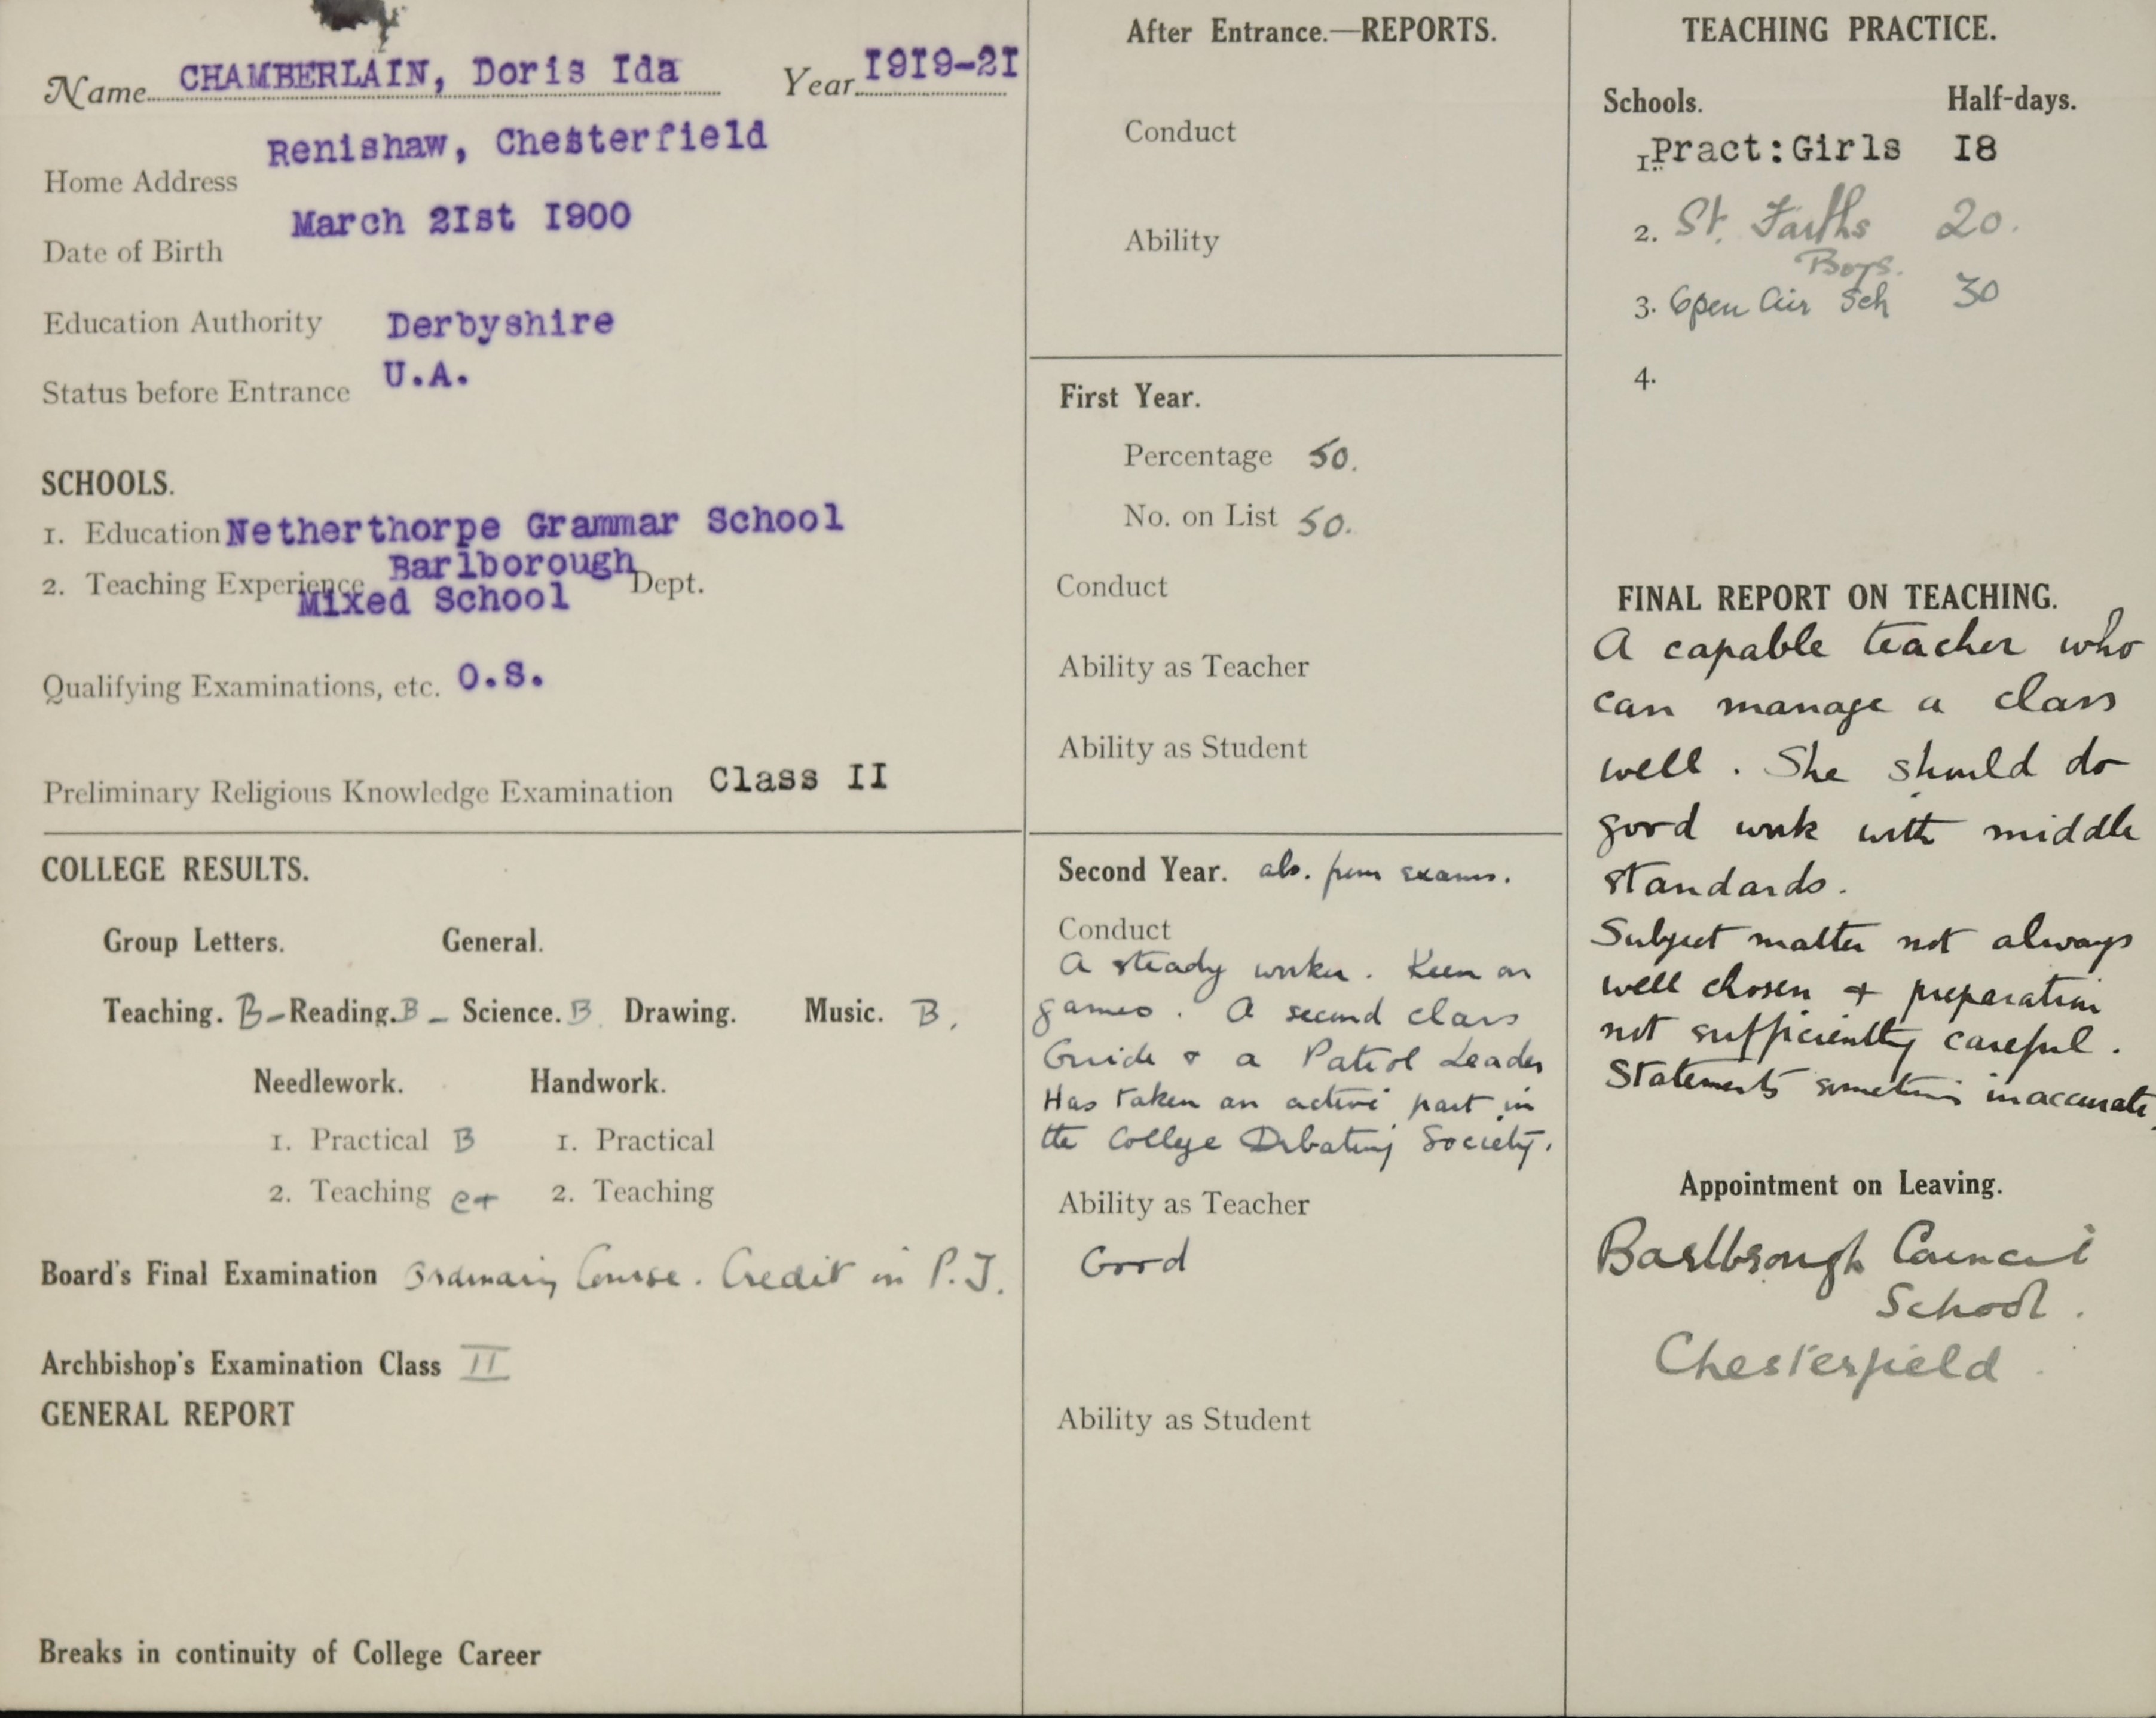 Name CHAMBERLAIN, Doris Ida Year 1919-21
Home Address Renishaw, Chesterfield
Date of Birth March 21st 1900
Education Authority Derbyshire
Status before Entrance U.A.
SCHOOLS.
1. Education Netherthorpe Grammar School
2. Teaching Experience Barlborough Mixed School Dept.
Qualifying Examinations, etc. O.S.
Preliminary Religious Knowledge Examination Class II
COLLEGE RESULTS.
Group Letters. General.
Teaching. B- Reading. B- Science. B Drawing. Music. B.
Needlework. Handwork.
1. Practical B 1. Practical
2. Teaching C+ 2. Teaching
Board's Final Examination Ordinary Course. Credit in P.T.
Archbishop's Examination Class II
GENERAL REPORT
Breaks in continuity of College Career
After Entrance.—REPORTS.
Conduct
Ability
First Year.
Percentage 50.
No. on List 50.
Conduct
Ability as Teacher
Ability as Student
Second Year. abs. from exams.
Conduct
A steady worker. Keen on
games. A second class
Guide & a Patrol Leader
Has taken an active part in
the College Debating Society.
Ability as Teacher
Good
Ability as Student
TEACHING PRACTICE.
Schools. Half-days.
1. Pract:Girls 18
2. St. Faiths Boys. 20.
3. Open Air Sch 30
4.
FINAL REPORT ON TEACHING.
A capable teacher who
can manage a class
well. She should do
good work with middle
standards.
Subject matter not always
well chosen & preparation
not sufficiently careful.
Statements sometimes inaccurate.
Appointment on Leaving.
Barlbrough Council
School.
Chesterfield.